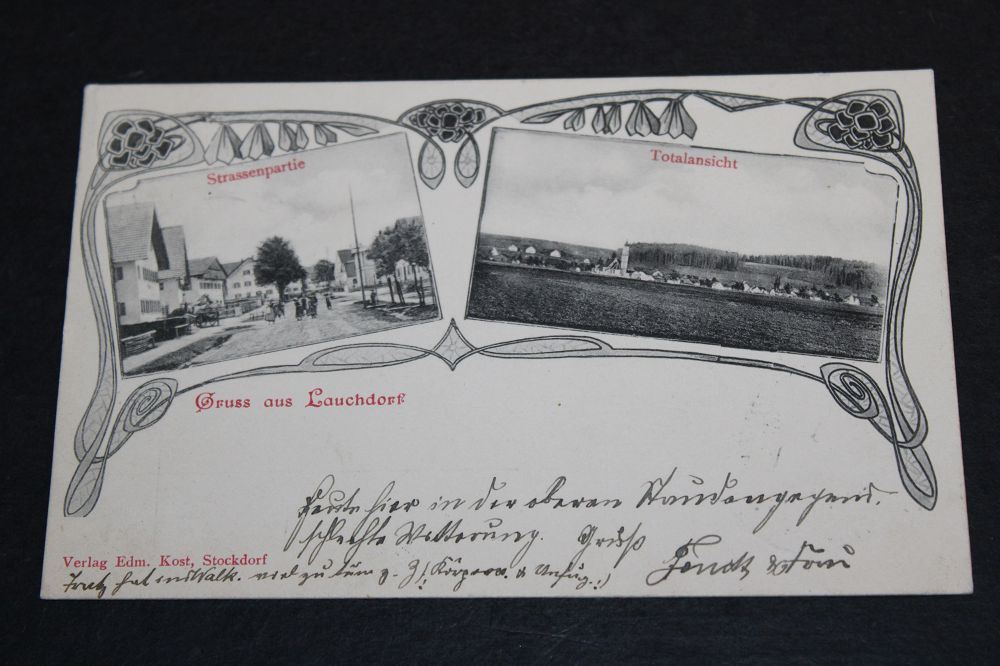 Strassenpartie
Totalansicht
Gruss aus Lauchdorf
Heute hier in der oberen Staudengegend.
schlechte Witterung. Gruß
Verlag Edm. Kost, Stockdorf
Fendt & Frau
hat
viel zu tun